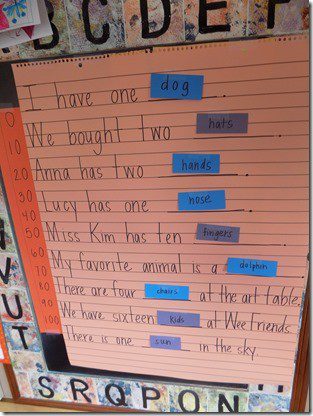 B C D E F
I have one dog.
We bought two hats.
Anna has two hands.
Lucy has one nose.
Miss Kim has ten fingers.
My favorite animal is a dolphin.
There are four chairs at the art table.
We have sixteen kids at Wee Friends.
There is one sun in the sky.
0
10
20
30
40
50
60
70
80
90
100
V
U
T
S R Q P O N